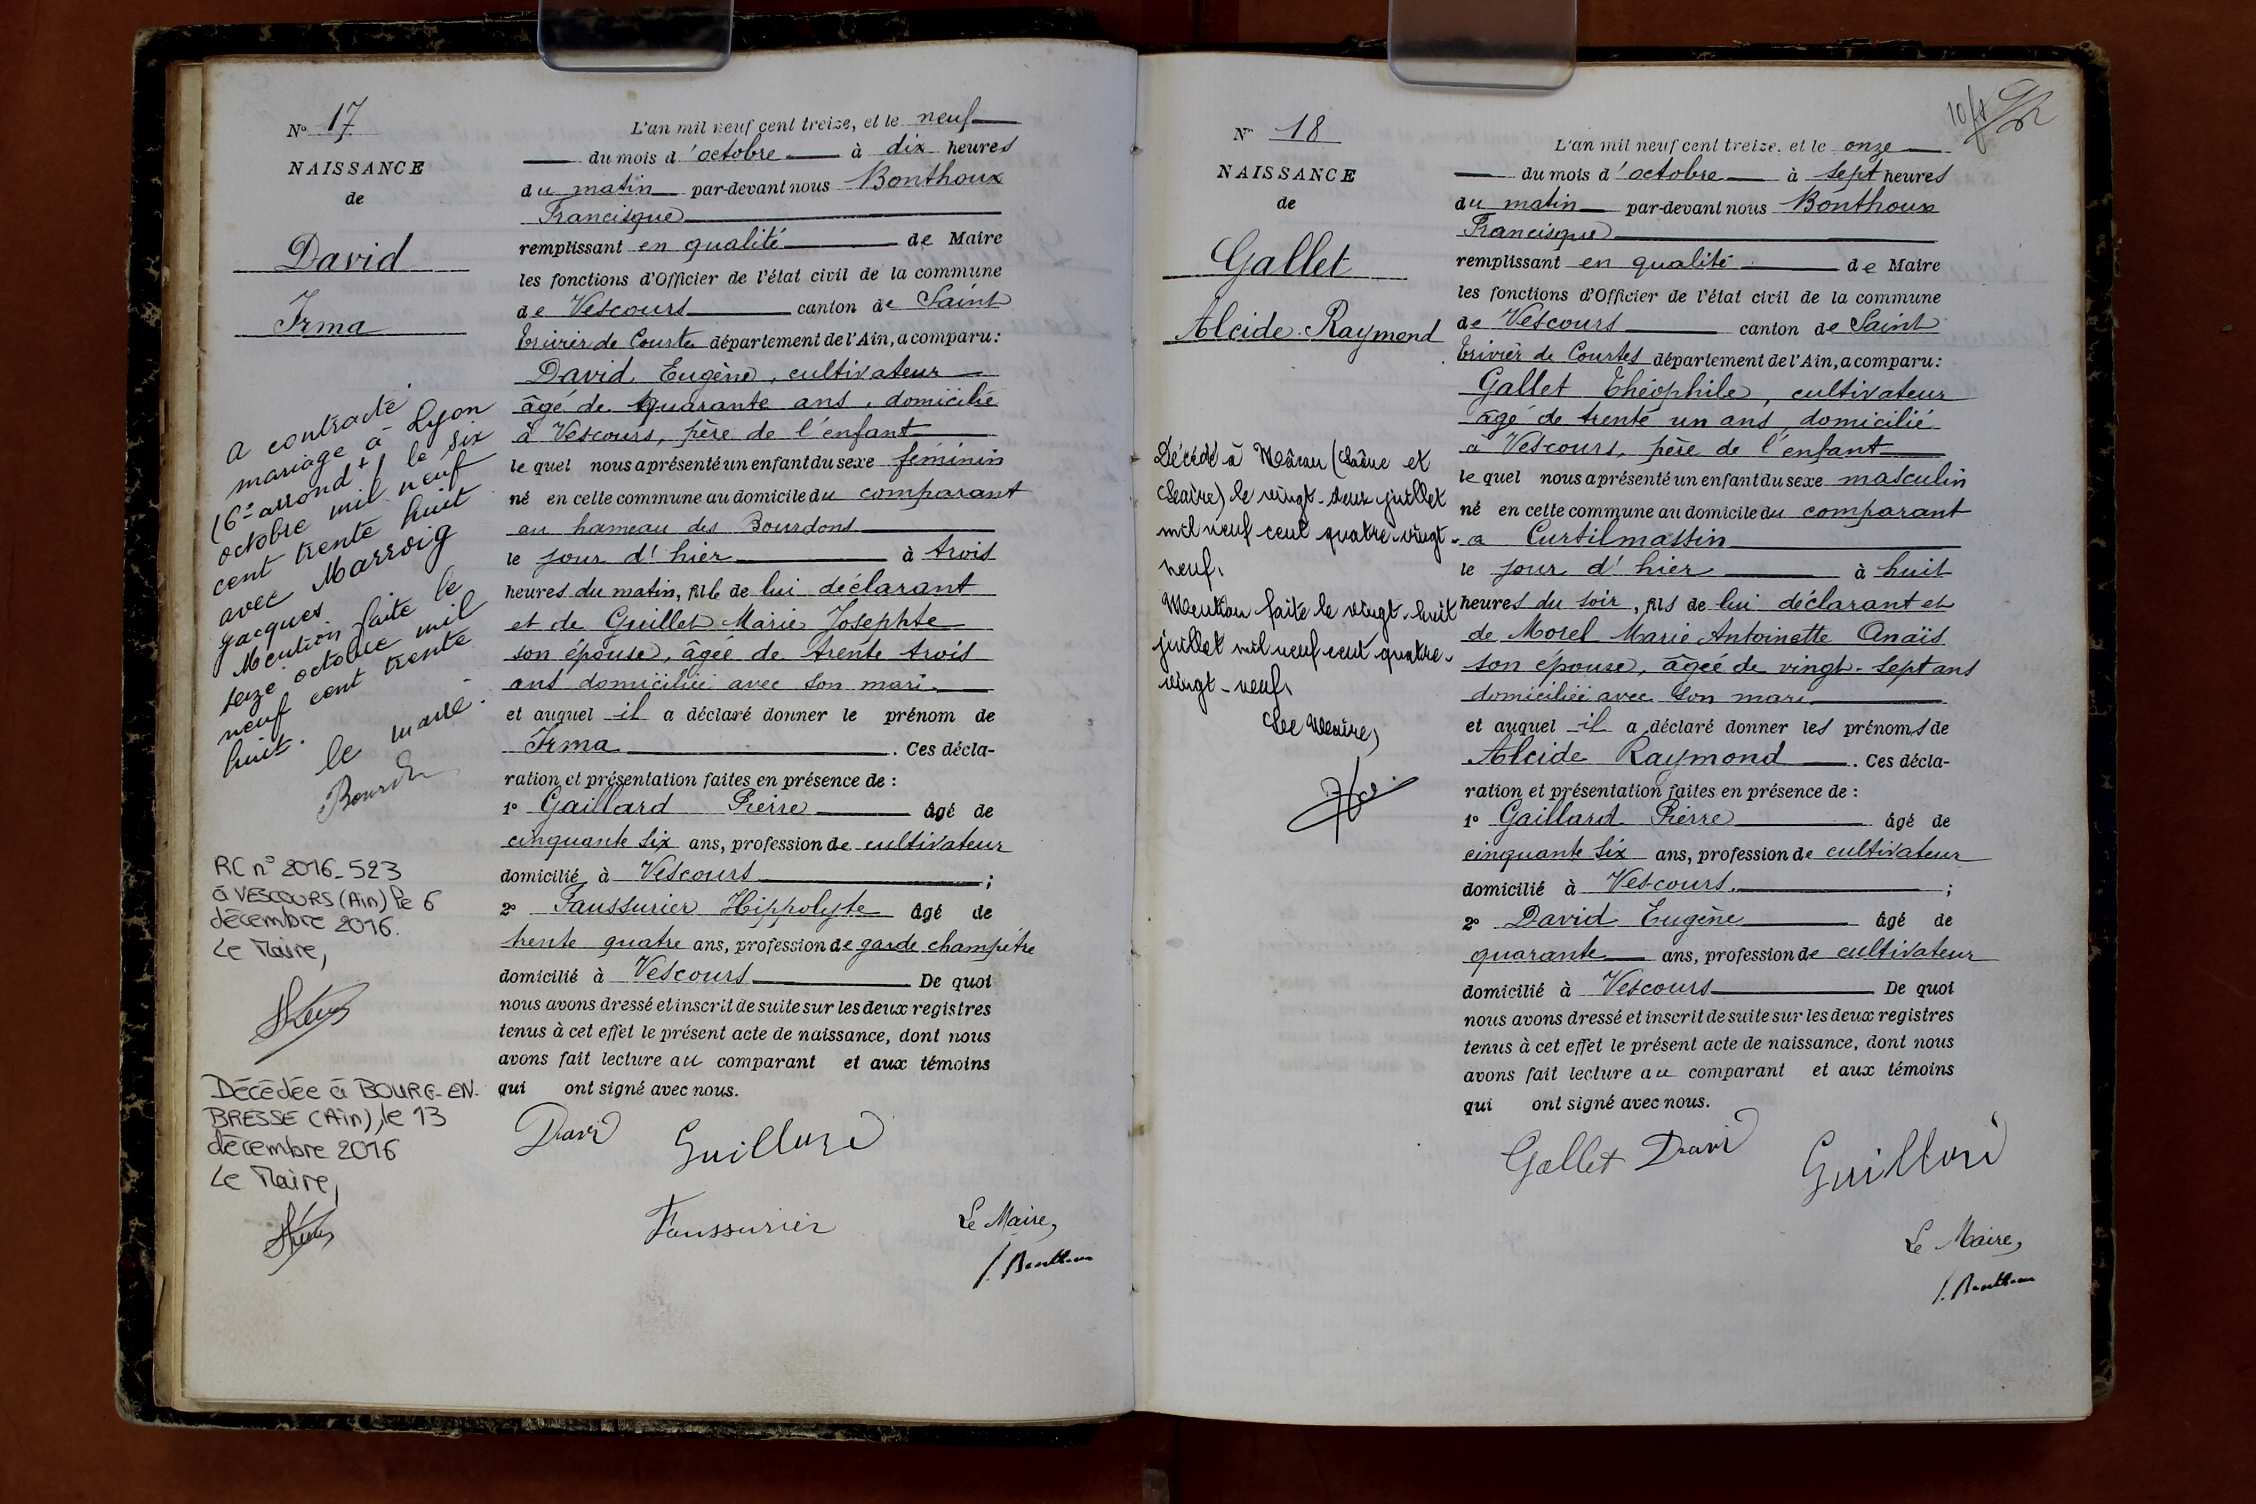 N° 17
NAISSANCE
de
David
Irma
a contracté
mariage à Lyon
(6e arrondt) le six
octobre mil neuf
cent trente huit
avec Marroig
Jacques
Mention faite le
seize octobre mil
neuf cent trente
huit.
le maire.
RC n° 2016-523
à VESCOURS (Ain) le 6
décembre 2016.
Le Maire,
Décédée à BOURG-EN-
BRESSE (Ain), le 13
décembre 2016
Le Maire,
L'an mil neuf cent treize, et le neuf
du mois d'octobre à dix heures
du matin par-devant nous Bonthoux
Francisque
remplissant en qualité de Maire
les fonctions d'Officier de l'état civil de la commune
de Vescours canton de Saint
Trivier de Courtes département de l'Ain, a comparu:
David Eugène, cultivateur
âgé de quarante ans, domicilié
à Vescours, père de l'enfant
le quel nous a présenté un enfant du sexe féminin
né en cette commune au domicile du comparant
au hameau des Bourdons
le jour d'hier à trois
heures du matin, fille de lui déclarant
et de Guillet Marie Josephte
son épouse, âgée de trente trois
ans domiciliée avec son mari.
et auquel il a déclaré donner le prénom de
Irma. Ces décla-
ration et présentation faites en présence de :
1° Gaillard Pierre âgé de
cinquante six ans, profession de cultivateur
domicilié à Vescours ;
2° Faussurier Hippolyte âgé de
trente quatre ans, profession de garde champêtre
domicilié à Vescours De quoi
nous avons dressé et inscrit de suite sur les deux registres
tenus à cet effet le présent acte de naissance, dont nous
avons fait lecture au comparant et aux témoins
qui ont signé avec nous.
David Guillard
Faussurier
Le Maire,
F. Bonthoux
10/1
N° 18
NAISSANCE
de
Gallet
Alcide Raymond
Décédé à Mâcon (Saône et
Loire) le vingt-deux juillet
mil neuf cent quatre-vingt-
neuf.
Mention faite le vingt-huit
juillet mil neuf cent quatre-
vingt-neuf.
Le Maire,
L'an mil neuf cent treize, et le onze
du mois d'octobre à sept heures
du matin par-devant nous Bonthoux
Francisque
remplissant en qualité de Maire
les fonctions d'Officier de l'état civil de la commune
de Vescours canton de Saint
Trivier de Courtes département de l'Ain, a comparu:
Gallet Théophile, cultivateur
âgé de trente un ans, domicilié
à Vescours, père de l'enfant
le quel nous a présenté un enfant du sexe masculin
né en cette commune au domicile du comparant
a Curtilmassin
le jour d'hier à huit
heures du soir, fils de lui déclarant et
de Morel Marie Antoinette Anaïs
son épouse, âgée de vingt-sept ans
domiciliée avec son mari
et auquel il a déclaré donner les prénoms de
Alcide Raymond. Ces décla-
ration et présentation faites en présence de :
1° Gaillard Pierre âgé de
cinquante six ans, profession de cultivateur
domicilié à Vescours. ;
2° David Eugène âgé de
quarante ans, profession de cultivateur
domicilié à Vescours De quoi
nous avons dressé et inscrit de suite sur les deux registres
tenus à cet effet le présent acte de naissance, dont nous
avons fait lecture au comparant et aux témoins
qui ont signé avec nous.
Gallet David Guillard
Le Maire,
F. Bonthoux